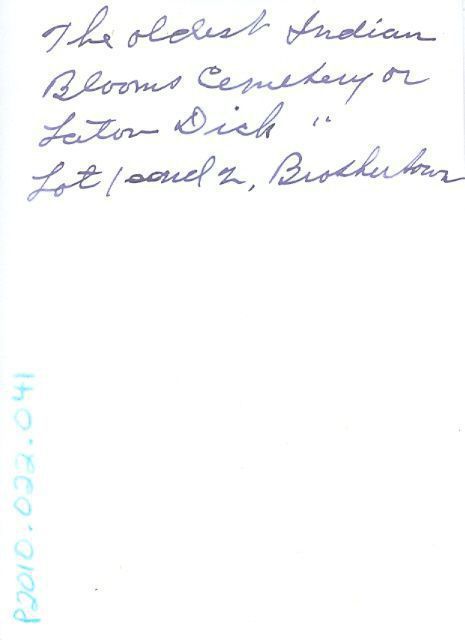 The oldest Indian
Blooms Cemetery or
Laton Dick "
Lot 1 and 2, Brothertown
P2010.022.041